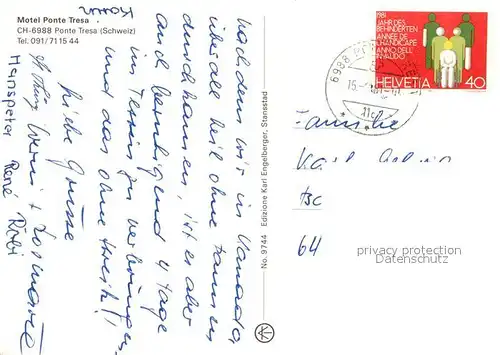 Motel Ponte Tresa
CH-6988 Ponte Tresa (Schweiz)
Tel. 091/71 15 44
Nachdem wir in Kanada,
überall heil ohne Pannen
durchkamen, ist es aber
auch beruhigend 4 Tage
im Tessin zu verbringen,
und das ohne Streik!!
Liebe Grüsse
Hanspeter René Rösi
No. 9744 Edizione Karl Engelberger, Stansstad
1981
JAHR DES
BEHINDERTEN
ANNÉE DE
L'HANDICAPÉ
ANNO DELL'
HELVETIA 40
6988
11c
Familie
Karl
64
privacy protection
Datenschutz